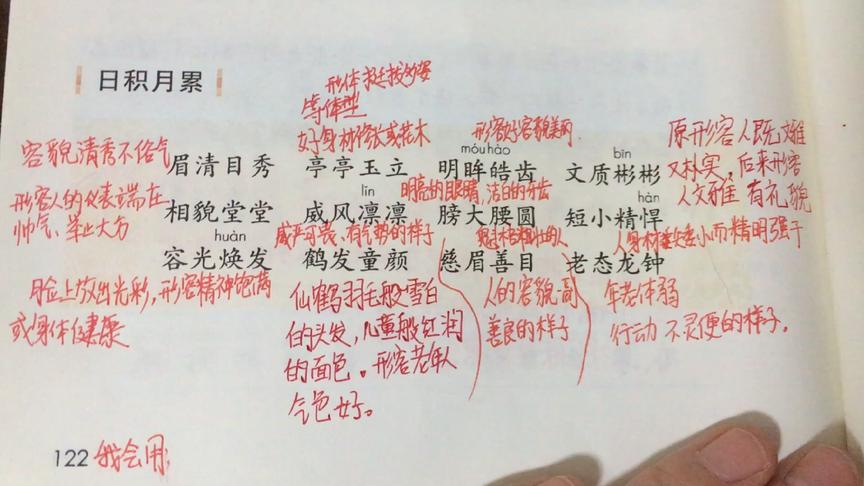 日积月累
形体挺拔多姿
等体型
好身材修长或花木
形容好容貌美丽
容貌清秀不俗气
眉清目秀 亭亭玉立 明眸皓齿 文质彬彬
móu hào
bīn
原形容人既文雅
又朴实，后来形容
人文雅有礼貌
形容人的仪表端庄
帅气、举止大方
明亮的眼睛，洁白的牙齿
lǐn
hàn
相貌堂堂 威风凛凛 膀大腰圆 短小精悍
威严可畏、有气势的样子
的人
人身材矮小而精明强干
huàn
容光焕发 鹤发童颜 慈眉善目 老态龙钟
脸上放出光彩，形容精神饱满
或身体健康
仙鹤羽毛般雪白
的头发，儿童般红润
的面色。形容老年人
气色好。
人的容貌
善良的样子
年老体弱
行动不灵便的样子。
122 我会用：